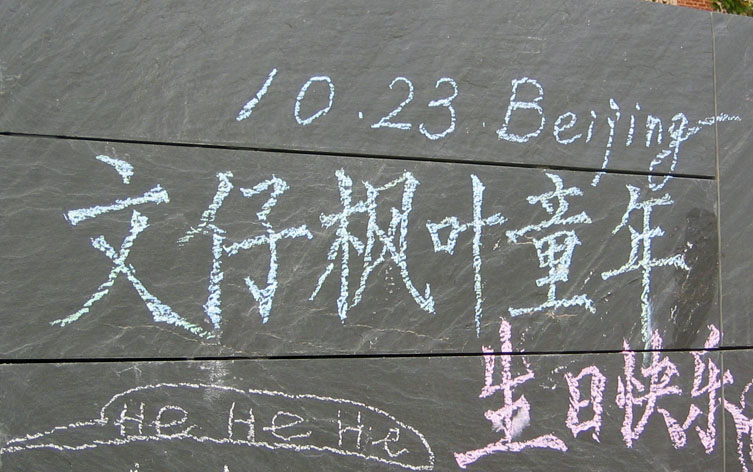 10.23.Beijing
文仔枫叶童年
生日快乐
He He He